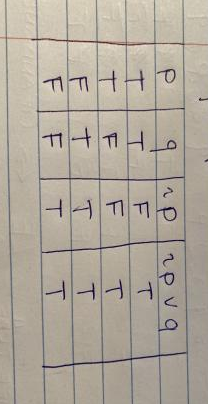 p q ~p ~p∨q
T T F T
T F F T
F T T T
F F T T